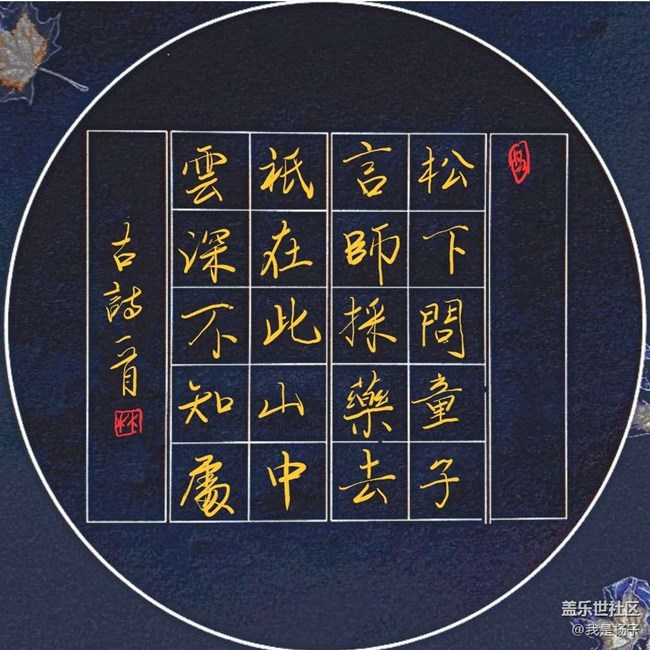 松下問童子
言師採藥去
祇在此山中
雲深不知處
古詩一首
盖乐世社区
@我是杨子